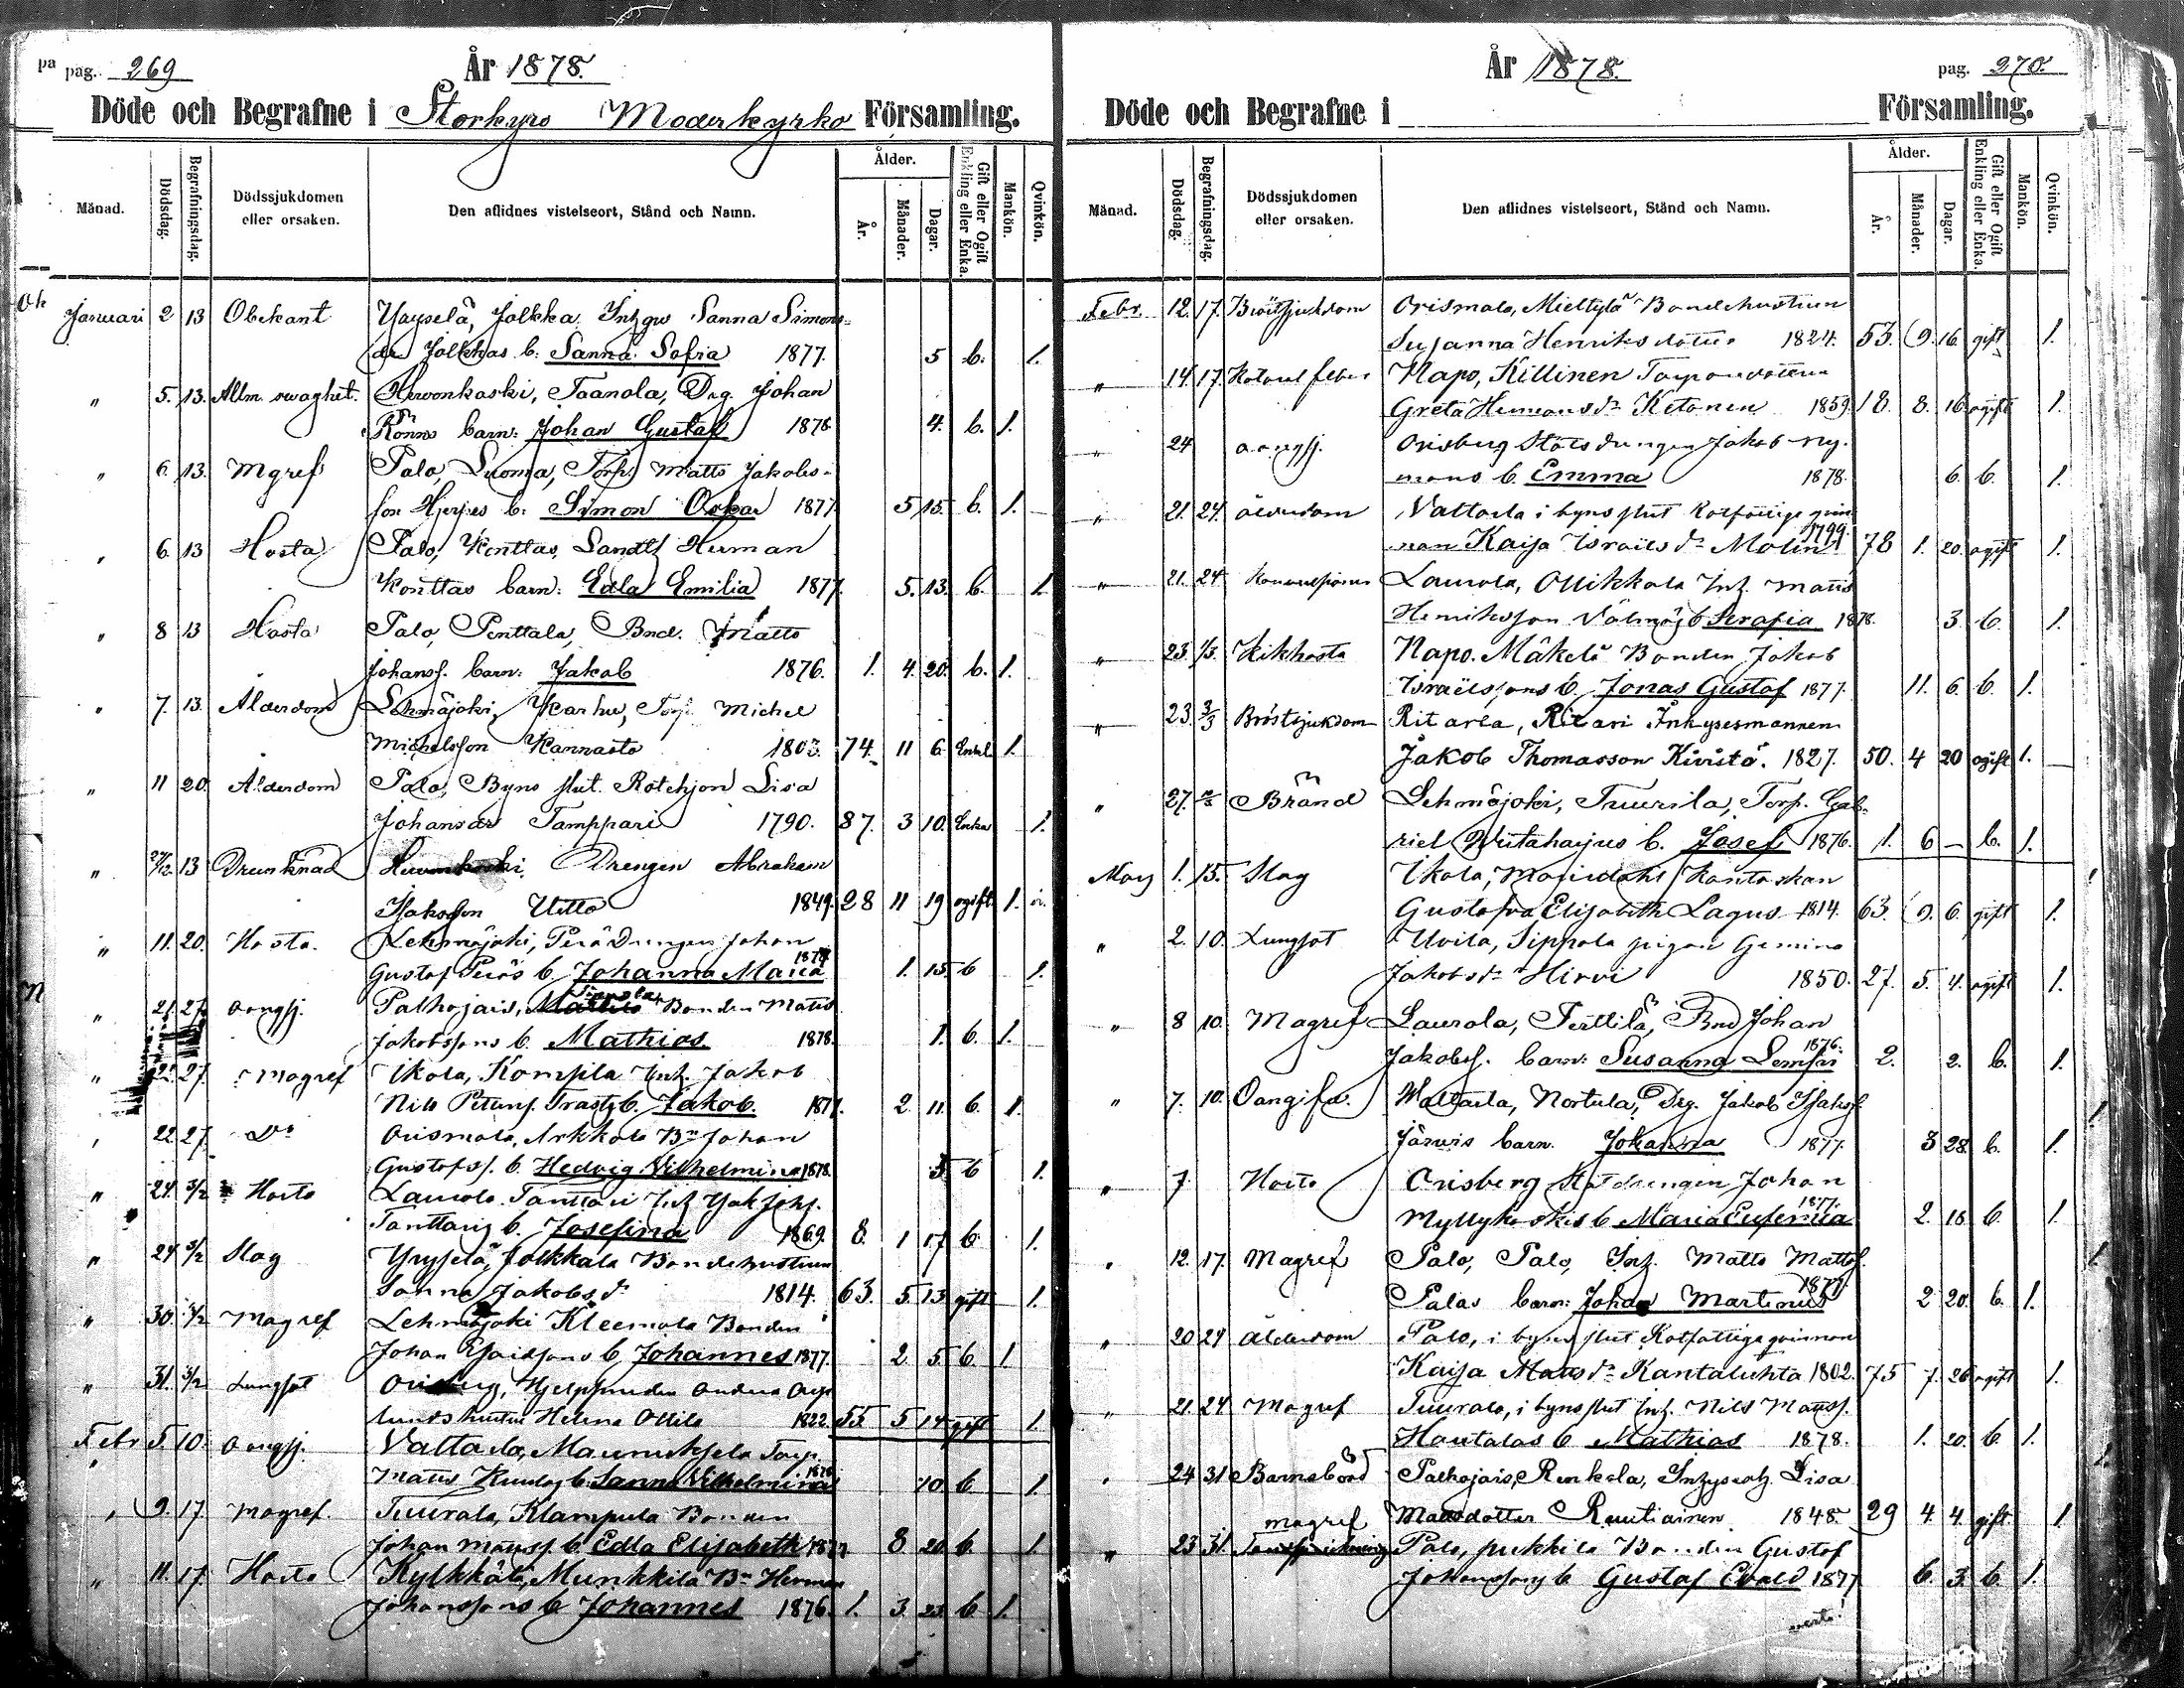 pag. 269
År 1878.
Döde och Begrafne i Storkyro Moderkyrko Församling.
Månad.
Dödsdag.
Begrafningsdag.
Dödssjukdomen eller orsaken.
Den aflidnes vistelseort, Stånd och Namn.
Ålder.
År.
Månader.
Dagar.
Gift eller Ogift Enkling eller Enka.
Mankön.
Qvinkön.
Januari 2 13 Obekant Yrysselä, Jolkka Inhgs Sanna Simons-
dr Jolkkas b. Sanna Sofia 1877. 5 b. 1.
" 5. 13. Allm. svaghet. Hevonkoski, Taanola, Drg. Johan
Rönns barn: Johan Gustaf 1878 4. b. 1.
" 6 13. Mgref Palo, Luoma, Torp. Matts Jakobs-
son b. Simon Oskar 1877 5 15. b. 1.
" 6 13 Hosta Palo, Konttas, Herman
Konttas barn: Edla Emilia 1877. 5. 13. b. 1.
" 8 13 Hosta Palo, Penttala, Bnd. Matts
Johanss. barn: Jakob 1876. 1. 4. 20. b. 1.
" 7. 13. Ålderdom Lehmäjoki, Karhu, Torp. Michel
Michelsson Kannasto 1803. 74. 11 6. Enkl 1.
" 11 20. Ålderdom Palo, Byns slut. Rotehjon Lisa
Johansdr Tamppari 1790. 87. 3 10. Enka 1.
" 13 Drunknad Drengen Abraham
Isaksson Uitto 1849. 28 11 19 ogift 1.
" 11. 20. Hosta. Lehmäjoki, Perä Drengen Johan
Gustaf Peräs b. Johanna Maria 1877. 1. 15. b 1.
" 21. 27. oangsj. Palhojais, Bonden Matts
Jakobssons b. Mathias 1878. 1. b. 1.
" 22. 27. Magref Ikola, Kompila Inh. Jakob
Nils Peters. b. Jakob. 1877. 2. 11. b. 1.
" 22. 27. Do Orismala, Arkkola Bn Johan
Gustafss. b. Hedvig Vilhelmina 1878. 5 b 1.
" 24. 3/2 Hosta Laurola Tanttari Inh.
Tanttaris b. Josefina 1869. 8. 1 17 b 1.
" 24 3/2 Slag Yrysselä, Jolkkala Bondehustrun
Sanna Jakobsdr 1814. 63. 5 13 gift 1.
" 30. 3/2 Magref Lehmäjoki Kleemola Bonden
Johan Esaiassons b. Johannes 1877. 2 5 b 1
" 31. 3/2 Lungsot Orisberg, Hjelpsmeden
hustru Helena Ottila 1822. 55 5 14 gift 1.
Febr 5. 10. oangsj. Valtarla, Maunukſela Torp.
Matts b. Sanna Vilhelmina 1878 10 b 1
" 9. 17. Magref. Tuurala, Klampula Bonden
Johan Matss. b. Edla Elisabeth 1877 8 20 b. 1.
" 11. 17. Hosta Kylkkälä, Munkkila Bn Herman
Johanssons b Johannes 1876. 1. 3 23 b 1.
År 1878.
pag. 270.
Döde och Begrafne i Församling.
Månad.
Dödsdag.
Begrafningsdag.
Dödssjukdomen eller orsaken.
Den aflidnes vistelseort, Stånd och Namn.
Ålder.
År.
Månader.
Dagar.
Gift eller Ogift Enkling eller Enka.
Mankön.
Qvinkön.
Febr. 12. 17. Bröstsjukdom Orismala, Miettylä Bondehustrun
Susanna Henriksdotter 1824. 53. 9. 16 gift 1.
" 14. 17. feber Napo, Killinen Torparedottern
Greta Hermansdr Ketonen 1859. 18. 8. 16 ogift 1.
" 24 oangsj. Orisberg Statsdrengen Jakob Ny-
mans b. Emma 1878. 6. b. 1.
" 21. 24. ålderdom Valtarla i byns slut Rotfattige qvin-
nan Kaisa Israelsdr Molin 1799. 78 1. 20. ogift 1.
" 21. 24 Konvulsioner Laurola, Ollikkala Inh. Matts
Henriksson b Serafia 1878. 3. b. 1.
" 23. 1/3. Kikhosta Napo. Mäkelä Bonden Jakob
Israelssons b. Jonas Gustaf 1877. 11. 6. b. 1.
" 23. 3/3 Bröstsjukdom Ritarla, Ritari Inhysesmannen
Jakob Thomasson Kivistö. 1827. 50. 4 20 ogift 1.
" 27. Bränd Lehmäjoki, Tuurila, Torp. Gab-
riel b. Josef 1876. 1. 6 - b. 1.
Mars 1. 15. Slag Ikola,
Gustafva Elisabeth Lagus 1814. 63. 9. 6. gift 1.
" 2. 10. Lungsot Ulvila, Sippola pigan Gemina
Jakobsdr Hirvi 1850. 27. 5. 4. ogift 1.
" 8 10. Magref Laurola, Perttilä, Bnd Johan
Jakobss. barn: Susanna 1876. 2. 2. b. 1.
" 7. 10. Oangifv. Waltarla, Nortula, Drg. Jakob Isakss.
Järvis barn. Johanna 1877. 3 28. b. 1.
" 7. Hosta Orisberg Statdrengen Johan
Myllykoskis b Maria Eufemia 1877. 2. 18 b. 1.
" 12. 17. Magref Palo, Palo, Inh. Matts Mattss.
Palas barn: Johan Martinus 1877. 2 20. b. 1.
" 20 24 Ålderdom Palo, i byns slut Rotfattiga qvinnan
Kaisa Matsdr Kantaluhta 1802. 75 7. 26 ogift 1.
" 21. 24 Magref Tuurala, i byns slut Inh. Nils Matss.
Hautalas b Mathias 1878. 1. 20. b. 1.
" 24 31 Barnsbörd Palhojais, Renkola, Lisa
Matsdotter Ruutiainen 1848. 29 4 4. gift 1
" 23 31. magref Palo, pukkila Bonden Gustaf
Johanssons b Gustaf Evald 1877 6. 3. b. 1.
verte!